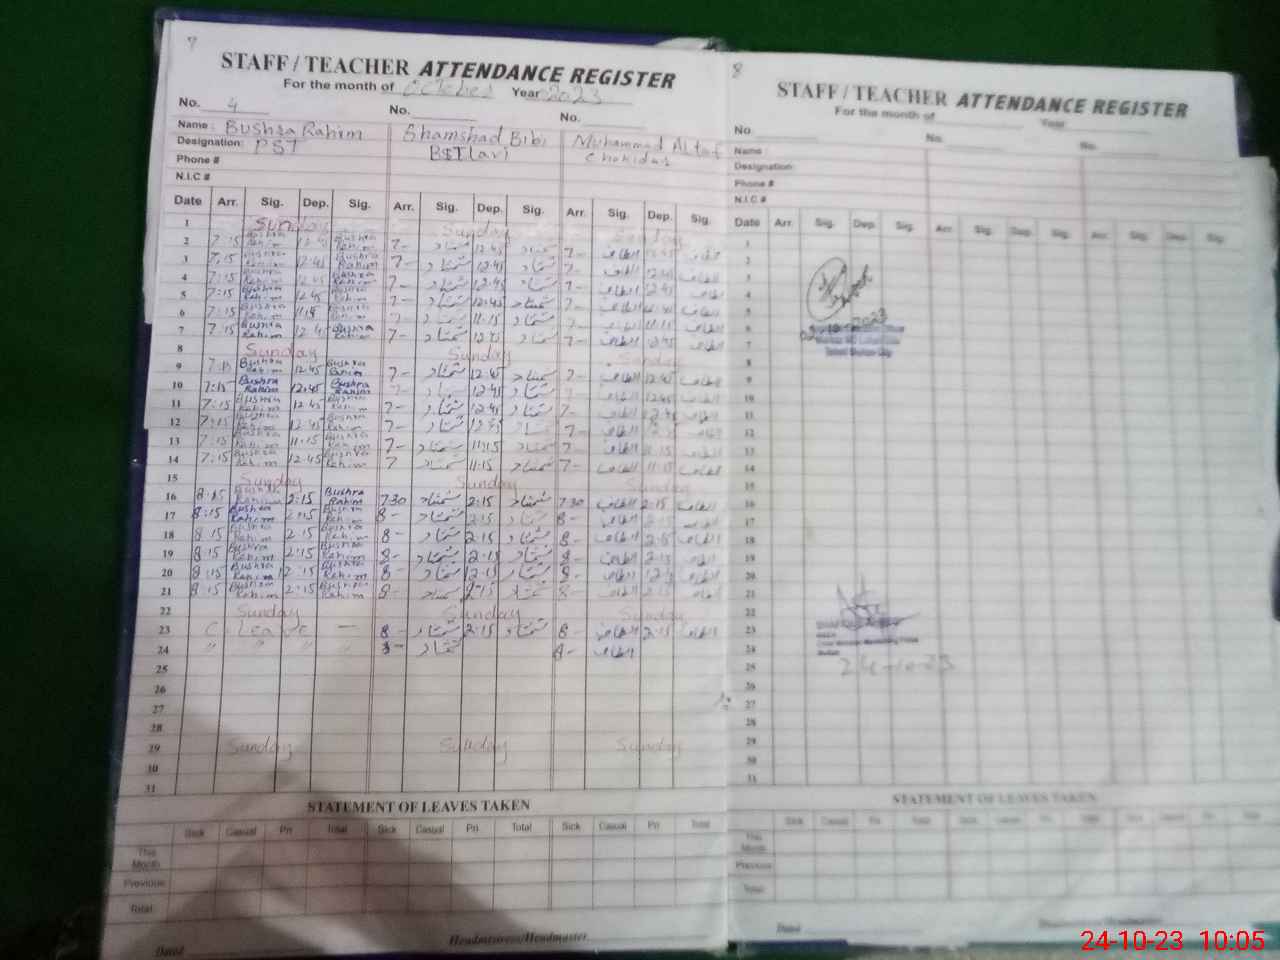 7
STAFF/TEACHER ATTENDANCE REGISTER
For the month of October Year 2023
No. 4 No. No.
Name: Bushra Rahim Shamshad Bibi Muhammad Altaf
Designation: PST Chokidar
Phone #
N.I.C #
Date Arr. Sig. Dep. Sig. Arr. Sig. Dep. Sig. Arr. Sig. Dep. Sig.
1 Sunday Sunday Sunday
2 7:15 Bushra Rahim 12:45 Bushra Rahim 7- شمشاد 12:45 شمشاد 7- الطاف 12:45 الطاف
3 7:15 Bushra Rahim 12:45 Bushra Rahim 7- شمشاد 12:45 شمشاد 7- الطاف 12:45 الطاف
4 7:15 Bushra Rahim 12:45 Bushra Rahim 7- شمشاد 12:45 شمشاد 7- الطاف 12:45 الطاف
5 7:15 Bushra Rahim 12:45 Bushra Rahim 7- شمشاد 12:45 شمشاد 7- الطاف 12:45 الطاف
6 7:15 Bushra Rahim 11:15 Bushra Rahim 7- شمشاد 11:15 شمشاد 7- الطاف 11:15 الطاف
7 7:15 Bushra Rahim 12:45 Bushra Rahim 7- شمشاد 12:45 شمشاد 7- الطاف 12:45 الطاف
8 Sunday Sunday Sunday
9 7:15 Bushra Rahim 12:45 Bushra Rahim 7- شمشاد 12:45 شمشاد 7- الطاف 12:45 الطاف
10 7:15 Bushra Rahim 12:45 Bushra Rahim 7- شمشاد 12:45 شمشاد 7- الطاف 12:45 الطاف
11 7:15 Bushra Rahim 12:45 Bushra Rahim 7- شمشاد 12:45 شمشاد 7- الطاف 12:45 الطاف
12 7:15 Bushra Rahim 12:45 Bushra Rahim 7- شمشاد 12:45 شمشاد 7- الطاف الطاف
13 7:15 Bushra Rahim 11:15 Bushra Rahim 7- شمشاد 11:15 شمشاد 7- الطاف 11:15 الطاف
14 7:15 Bushra Rahim 12:45 Bushra Rahim 7 شمشاد 11:15 شمشاد 7- الطاف 11:15 الطاف
15 Sunday Sunday Sunday
16 8:15 Bushra Rahim 2:15 Bushra Rahim 7:30 شمشاد 2:15 شمشاد 7:30 الطاف 2:15 الطاف
17 8:15 Bushra Rahim 2:15 Bushra Rahim 8- شمشاد 2:15 شمشاد 8- الطاف 2:15 الطاف
18 8:15 Bushra Rahim 2:15 Bushra Rahim 8- شمشاد 2:15 شمشاد 8- الطاف 2:15 الطاف
19 8:15 Bushra Rahim 2:15 Bushra Rahim 8- شمشاد 2:15 شمشاد 8- الطاف 2:15 الطاف
20 8:15 Bushra Rahim 12:15 Bushra Rahim 8- شمشاد 12:15 شمشاد 8- الطاف 12:15 الطاف
21 8:15 Bushra Rahim 2:15 Bushra Rahim 8- شمشاد 2:15 شمشاد 8- الطاف 2:15 الطاف
22 Sunday Sunday Sunday
23 C. Leave — 8- شمشاد 2:15 شمشاد 8- الطاف 2:15 الطاف
24 " " " " 8- شمشاد 8- الطاف
25
26
27
28
29 Sunday Sunday Sunday
30
31
STATEMENT OF LEAVES TAKEN
Sick Casual Pri Total Sick Casual Pri Total Sick Casual Pri Total
This Month
Previous
Total
Dated Headmistress/Headmaster
8
STAFF/TEACHER ATTENDANCE REGISTER
For the month of Year
No. No. No.
Name:
Designation:
Phone #
N.I.C #
Date Arr. Sig. Dep. Sig. Arr. Sig. Dep. Sig. Arr. Sig. Dep. Sig.
1
2
3
4
5
6
7
8
9
10
11
12
13
14
15
16
17
18
19
20
21
22
23
24
25 24-10-23
26
27
28
29
30
31
STATEMENT OF LEAVES TAKEN
This Month
Previous
Total
24-10-23 10:05